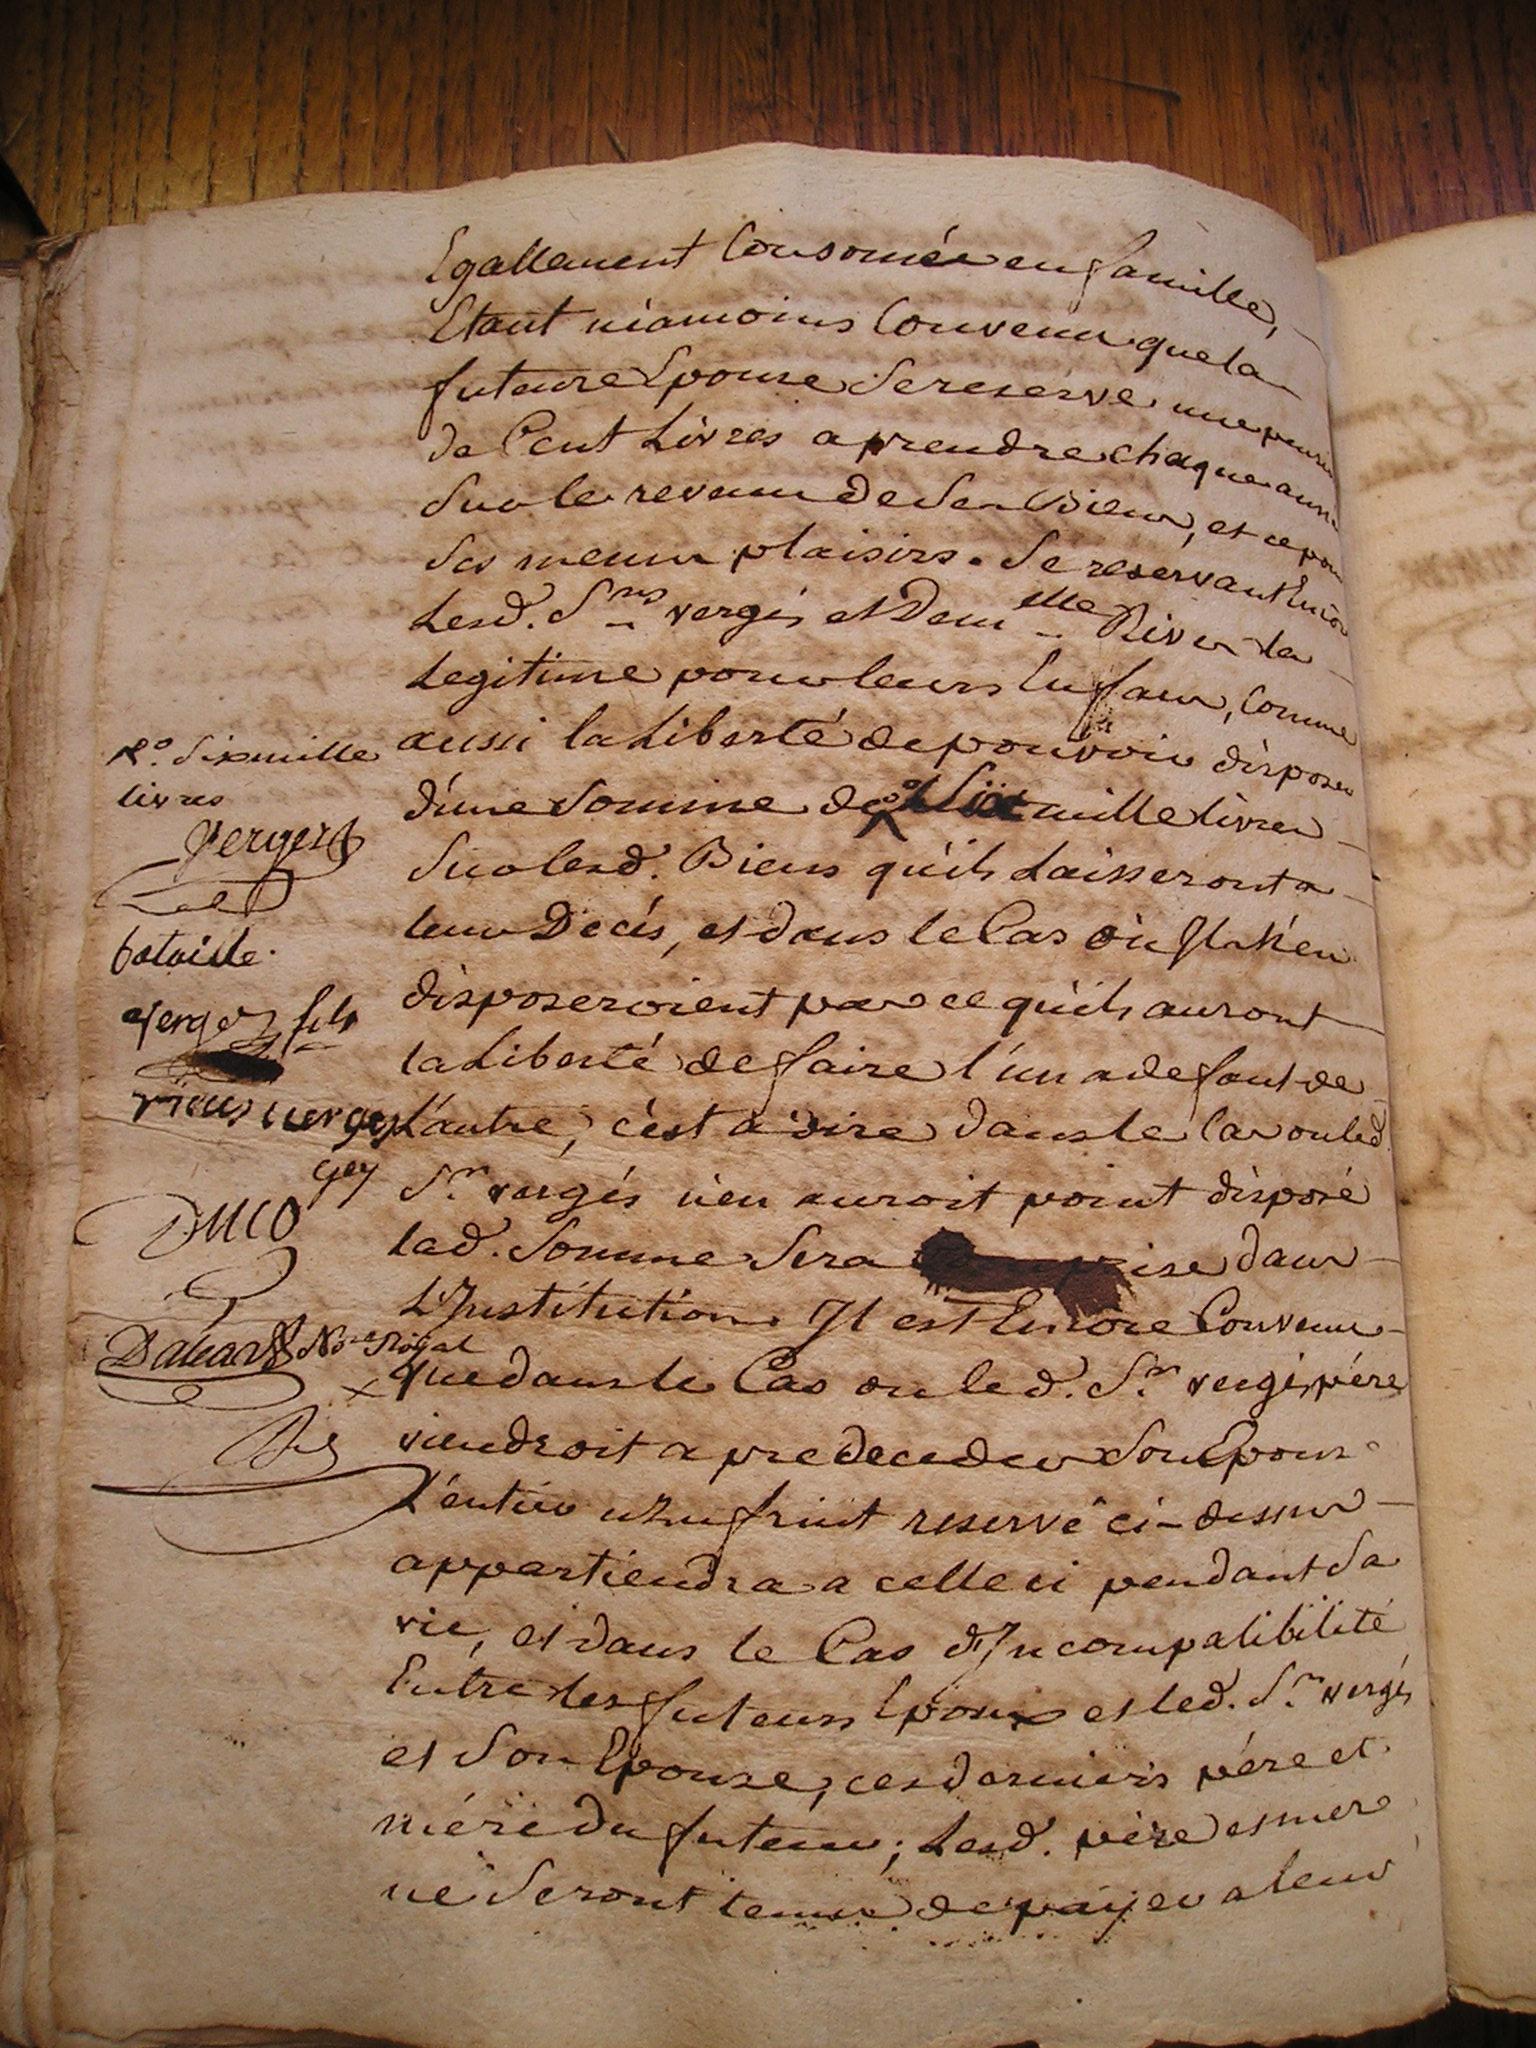 Egallement Consomée en famille,
Etant néamoins Convenu que la
future Epouse Se reserve une pension
de Cent Livres a prendre chaque année
Sur le revenu de Ses Biens, et ce pour
Ses menus plaisirs. Se reservant Encor
Lesd. Srs vergés et Demlle Rivес la
Legitime pour leurs Enfans, Comme
aussi la Liberté de pouvoir disposer
d'une Somme de Six mille livres
Sur lesd. Biens qu'ils Laisseront a
leur Decés, et dans le Cas où Ils n'en
disposeroient par ce qu'ils auront
la Liberté de faire l'un a defaut de
L'autre, c'est a dire dans le Cas ou led.
Sr. vergés n'en auroit point disposé
lad. Somme Sera dans
L'Institution. Il est Encore Convenu
que dans le Cas ou led. Sr. vergés pére
viendroit a predeceder Son Epouse
L'entier uzufruit reservé ci-dessus
appartiendra a celle ci pendant Sa
vie, et dans le Cas d'Incompatibilité
Entre les futeurs Epoux et led. Sr. vergés
et Son Epouse, ces derniers pére et
mére du futeur; Lesd. pére et mere
ne Seront tenus de payer a leur
Ro. Six mille
livres
Verges
bataille.
Verges fils
Vïeus verges
Gey
DUCO
Daleas No.re Royal